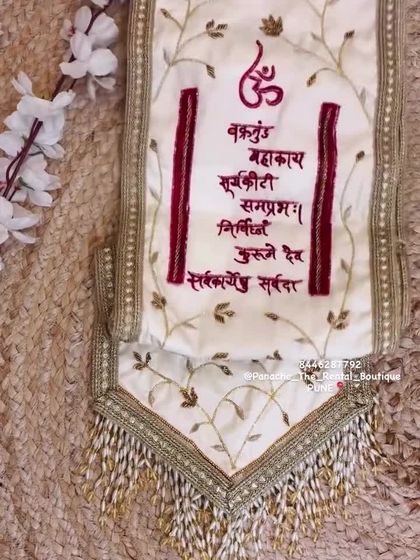 ॐ
वक्रतुंड
महाकाय
सूर्यकोटी
समप्रभः।
निर्विघ्नं
कुरूमे देव
सर्वकार्येषु सर्वदा
8446287792
@Panache_The_Rental_Boutique
PUNE📍